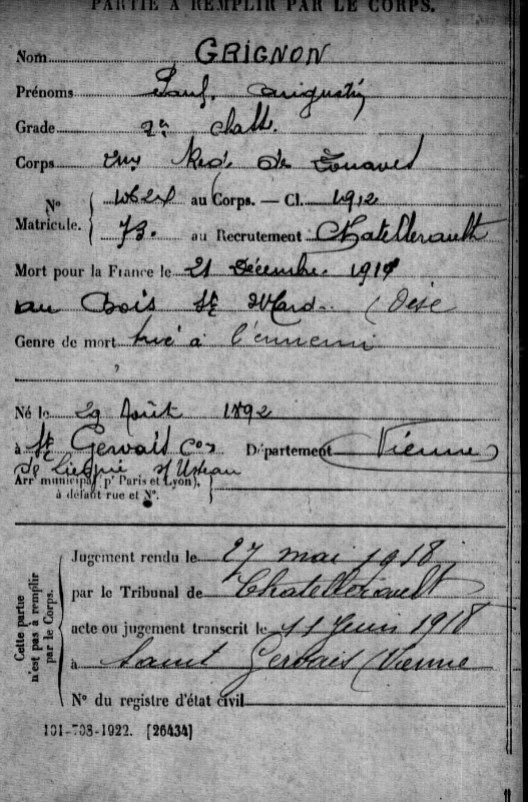 PARTIE À REMPLIR PAR LE CORPS.
Nom GRIGNON
Prénoms Paul Augustin
Grade 2e
Corps de Zouaves
No au Corps. — Cl. 1912
Matricule. 73. au Recrutement Chatellerault
Mort pour la France le 21 Décembre 1914
au Bois St Mard (Oise
Genre de mort tué à l'ennemi
Né le 29 Août 1892
à St Gervais Département Vienne
Arrt municipal (pr Paris et Lyon),
à défaut rue et No.
Cette partie
n'est pas à remplir
par le Corps.
Jugement rendu le 27 mai 1918
par le Tribunal de Chatellerault
acte ou jugement transcrit le 11 Juin 1918
à Saint Gervais (Vienne
No du registre d'état civil
101-708-1922. [26434]